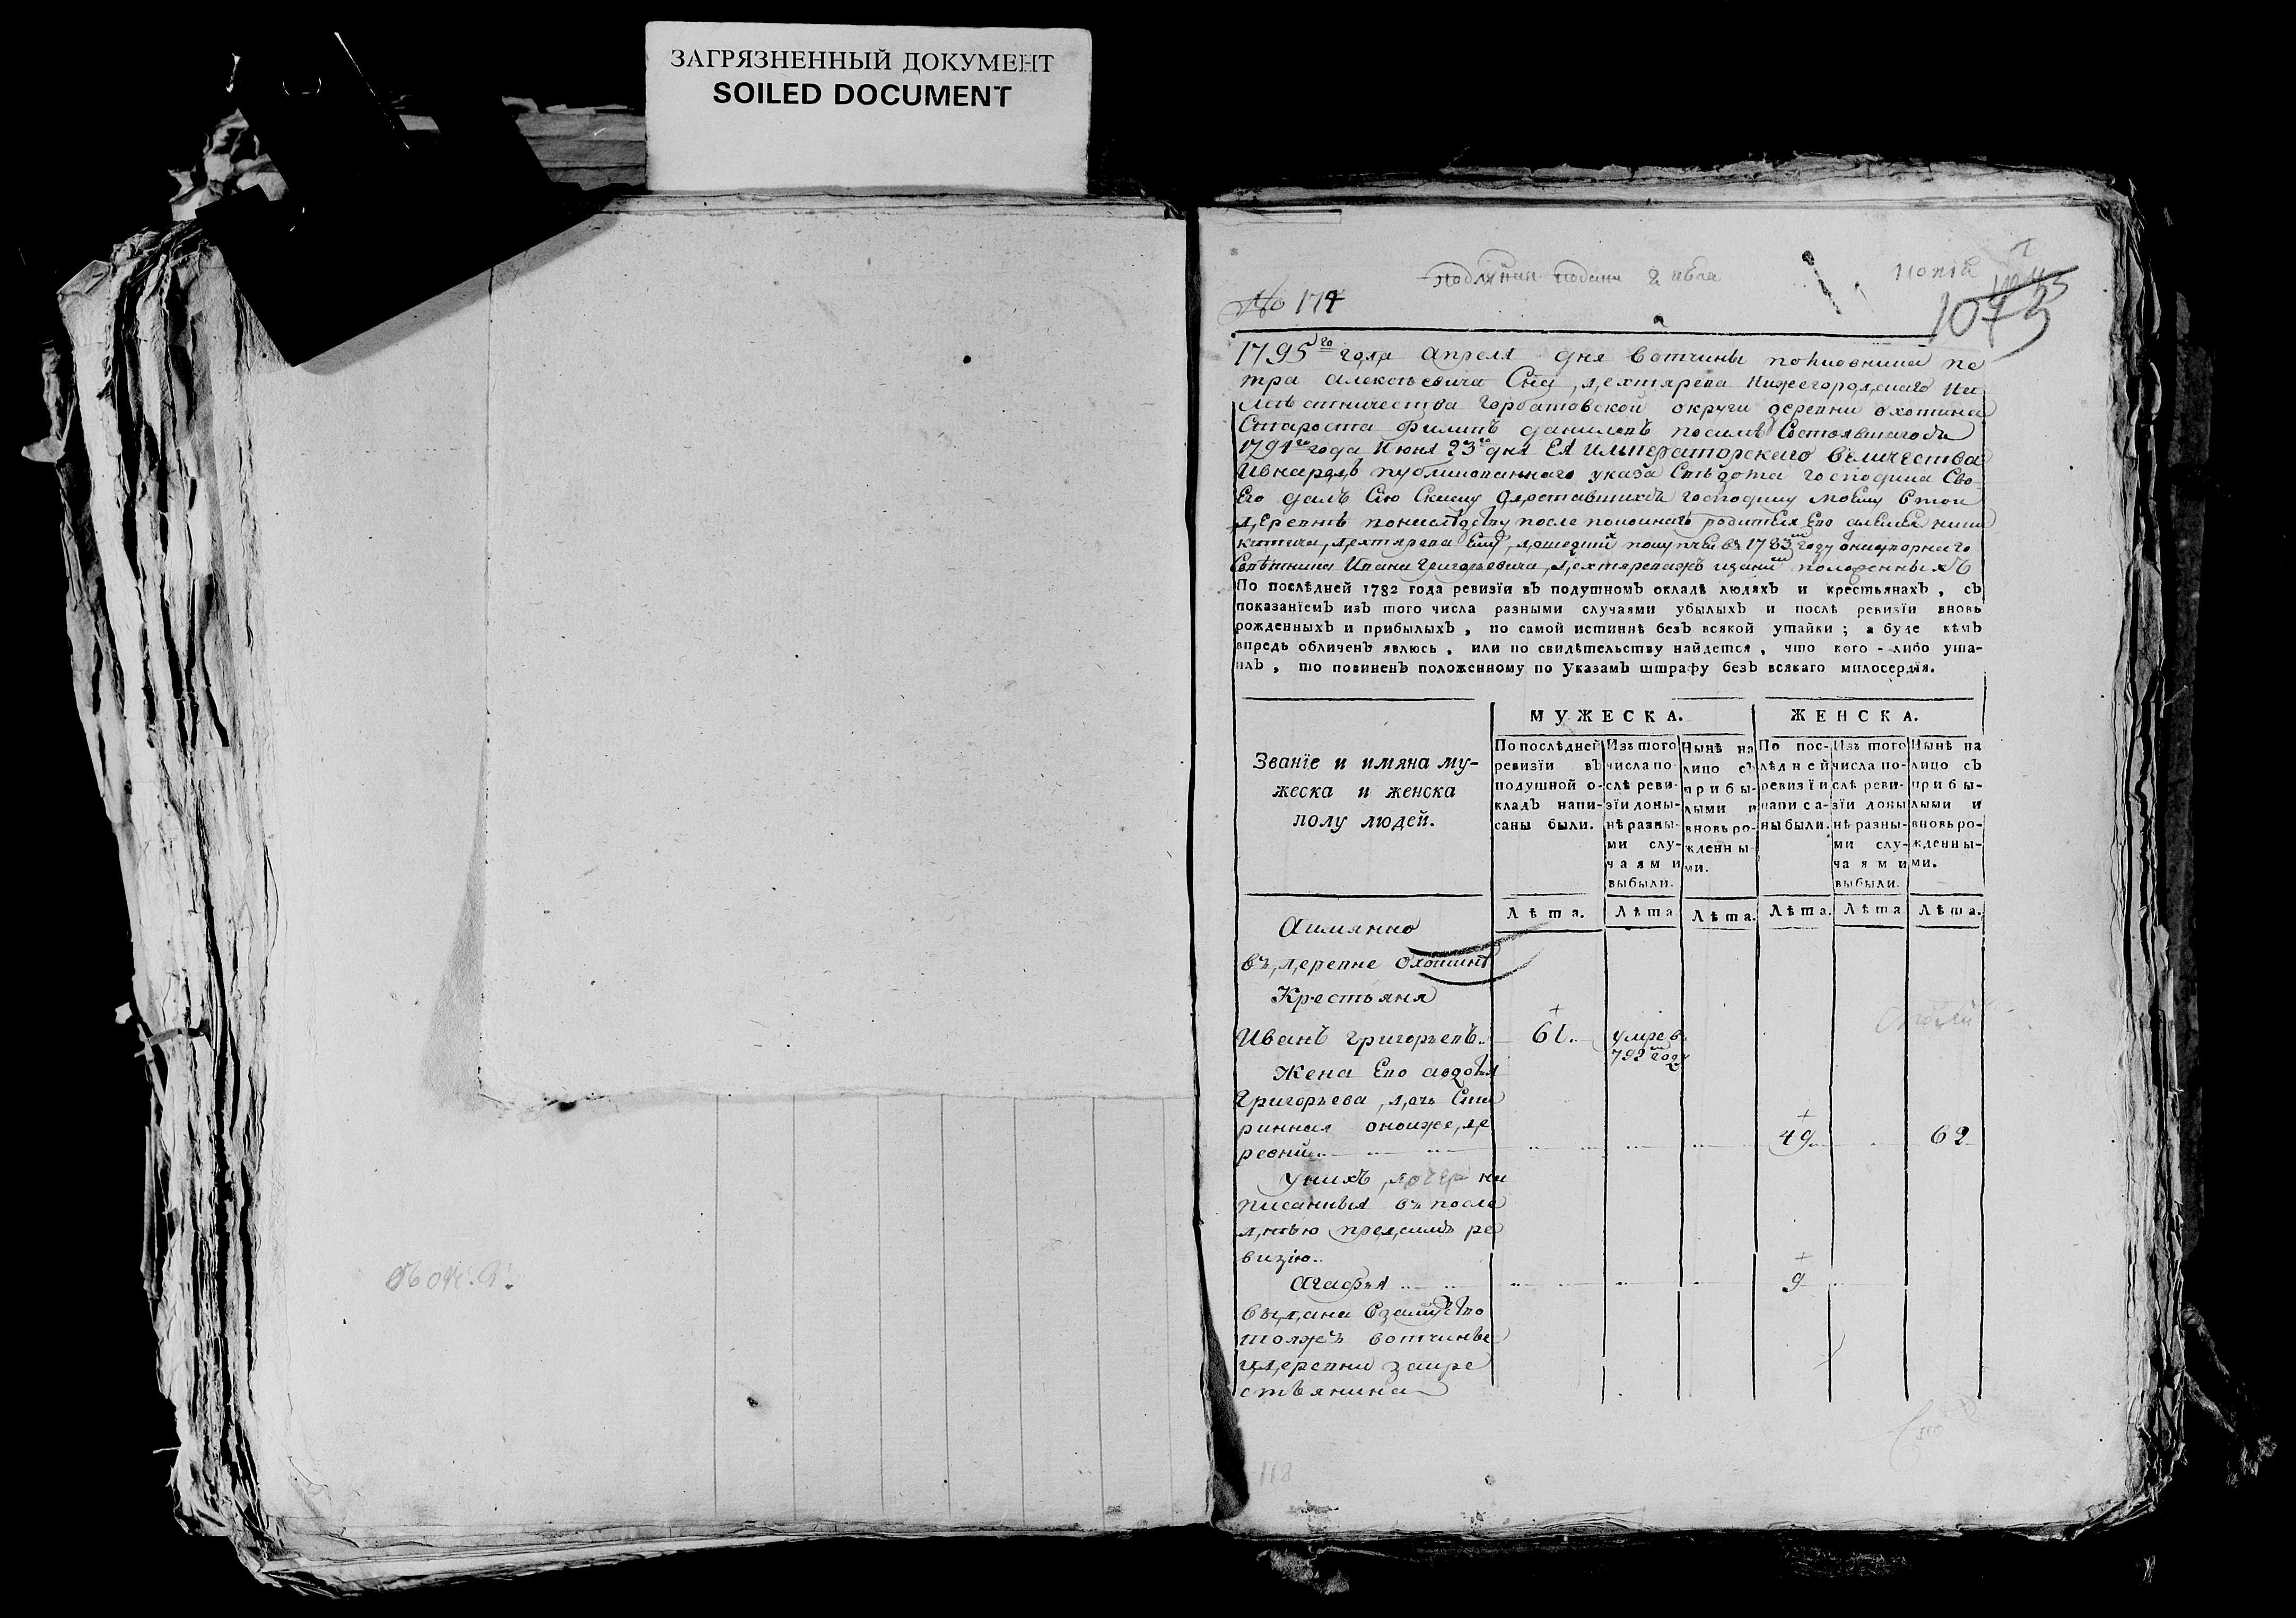 ЗАГРЯЗНЕННЫЙ ДОКУМЕНТ
SOILED DOCUMENT
копія
№ 174
1073
1795го года апреля дня вотчины полковника пе
тра алексѣевича Сна дехтярева Нижегородскаго на
местничества горбатовской округи деревни охотина
Староста филипъ даниловъ посилѣ Состоявшагося
1794го года Июня 23го дня Ея императорскаго величества
Ивнародъ публикованнаго указа Свѣдома господина Сво
Его далъ Сию Скаску доставшихся господину моему Втои
деревнѣ понаследству после покоинаго родителя Его алексея ники
китича дехтярева Ему дошедших покупкеи въ 1783м году
Советника Ивана григорьевича дехтярева положенныхъ
По послѣдней 1782 года ревизїи въ подушномъ окладѣ людяхъ и крестьянахъ, съ
показанїемъ изъ того числа разными случаями убылыхъ и послѣ ревизїи вновь
рожденныхъ и прибылыхъ, по самой истиннѣ безъ всякой утайки; а буде кѣмъ
впредь обличенъ явлюсь, или по свидѣтельству найдется, что кого-либо ута-
илъ, то повиненъ положенному по Указамъ штрафу безъ всякаго милосердїя.
Званїе и имяна му-
жеска и женска
полу людей.
МУЖЕСКА.
По послѣдней
ревизїи въ
подушной о-
кладъ напи-
саны были.
Изъ того
числа по
слѣ реви-
зїи доны-
нѣ разны-
ми слу-
чаями
выбыли.
Нынѣ на
лицо съ
прибы-
лыми и
вновь ро-
жденны-
ми.
ЖЕНСКА.
По пос-
лѣдней
ревизїи
написа-
ны были.
Изъ того
числа по-
слѣ реви-
зїи доны
нѣ разны-
ми слу-
чаями
выбыли.
Нынѣ на
лицо съ
прибы-
лыми и
вновь ро-
жденны-
ми.
Лѣта. Лѣта Лѣта. Лѣта. Лѣта Лѣта.
Аимянно
въ деревне Охотинѣ
Крестьяня
Иванъ григорьевъ 61. умре в
792м году
Жена Его авдотья
Григорьева дочь Ста
ринная оноиже де
ревни 49 62
Униxъ дочери на
писанныя въ после
днюю предсимъ ре
визію
Агафья 9
выдана Взамужство
тояжъ вотчины
идеревни закре
стьянина
118